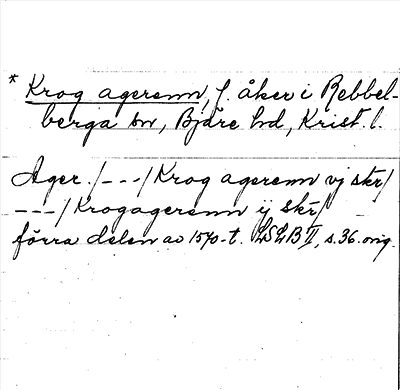 * Krog agerenn, f. åker i Rebbel-
berga sn, Bjäre hd, Krist. l.
Ager. /---/ Krog agerenn vj skr/
---/ Krogagerenn ij skr/
förra delen av 1570-t. LSGB II, s. 36. orig.